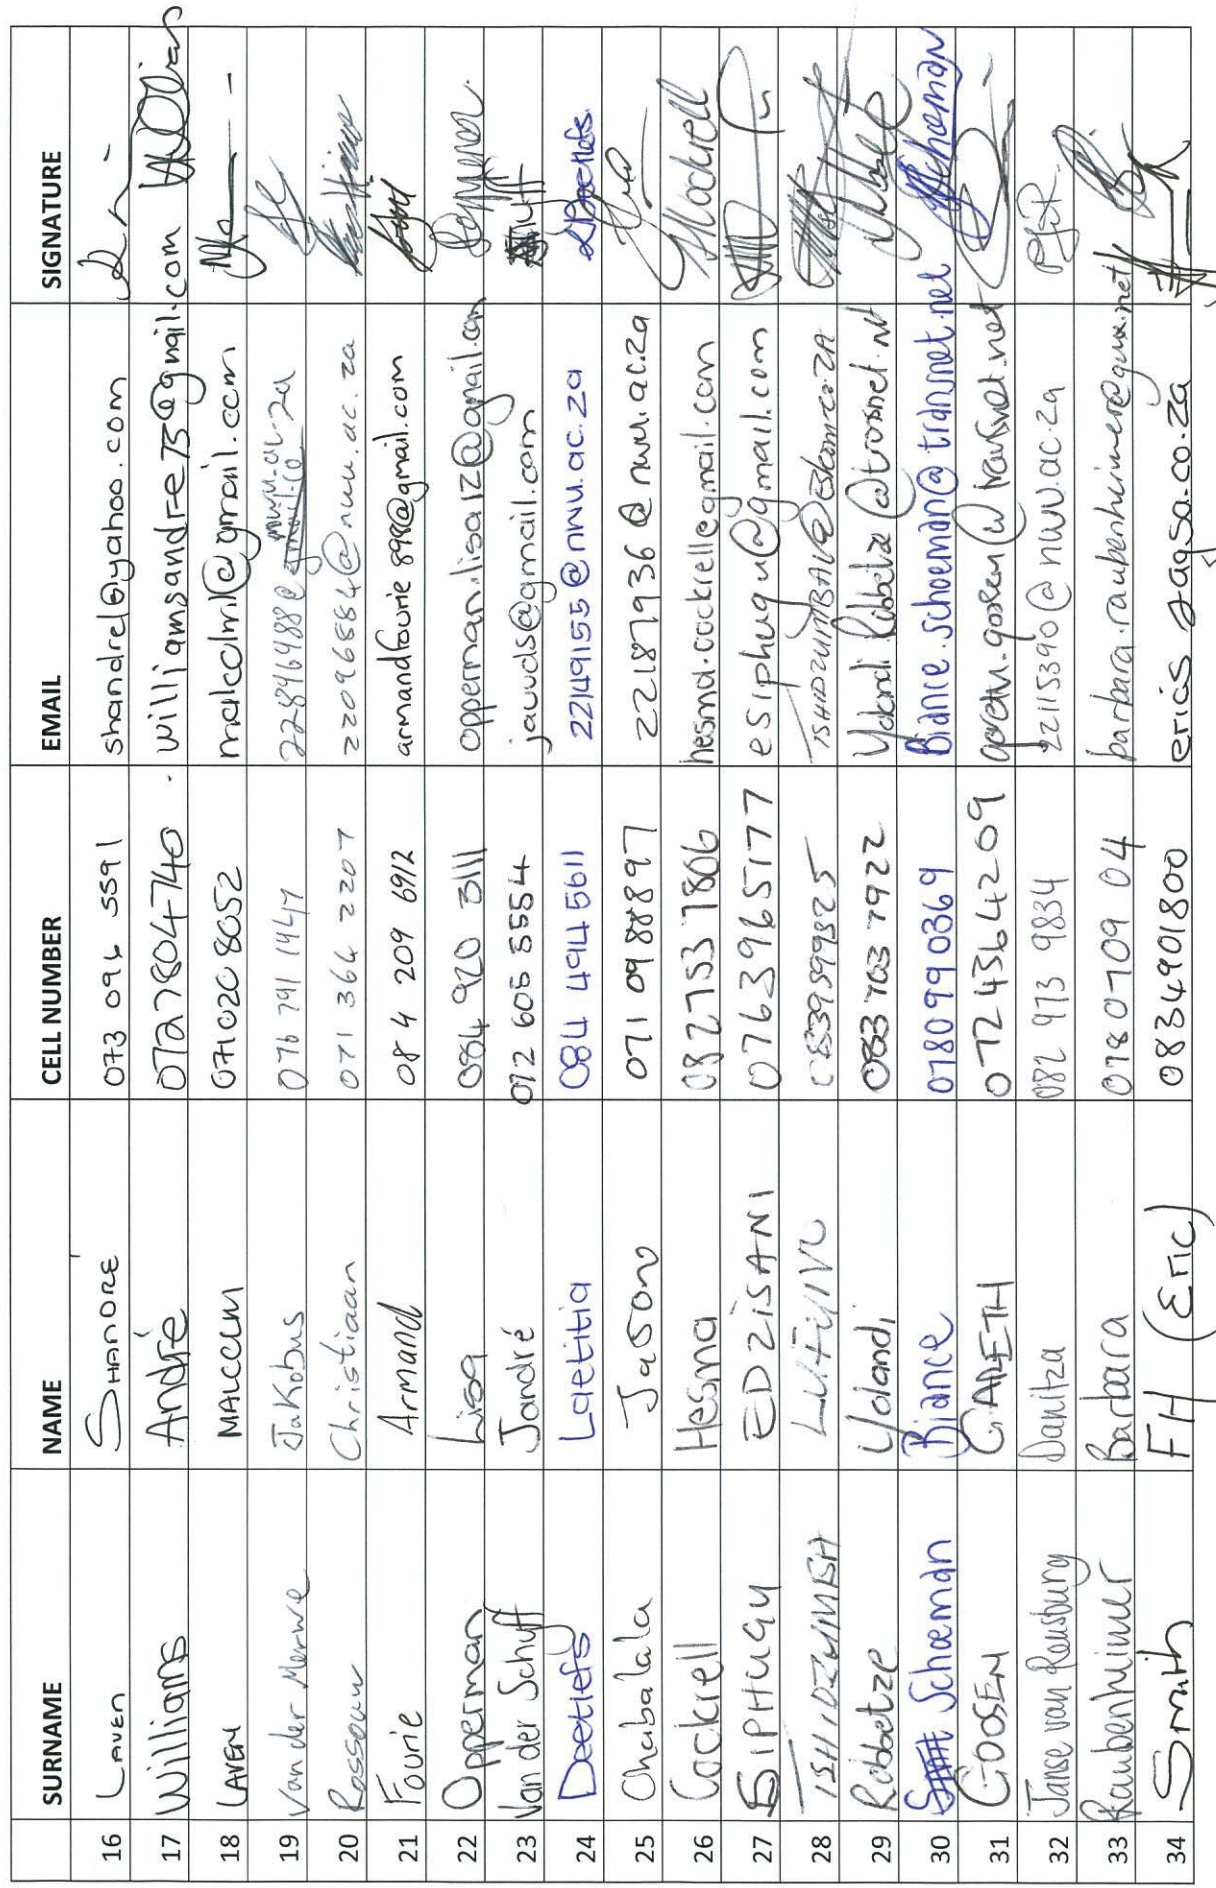 SURNAME NAME CELL NUMBER EMAIL SIGNATURE
16 LAVEN SHANDRÉ 073 096 5591 shandrel@yahoo.com
17 Williams André 0727804740 williamsandre75@gmail.com
18 LAVEN MALCOLM 071020 8052 malcolml@gmail.com
19 Van der Merwe Jakobus 076 791 1447 22846488@ nwu.ac.za
20 Rossouw Christiaan 071 364 2207 22096584@nwu.ac.za
21 Fourie Armand 084 209 6912 armandfourie898@gmail.com
22 Opperman Lisa 084 920 3111 opperman.lisa12@gmail.com
23 Van der Schyff Jandré 072 605 5554 jauvds@gmail.com
24 Deetlefs Laetitia 084 494 5611 22149155@nwu.ac.za
25 Chabalala Jason 071 098 8897 22187936@nwu.ac.za
26 Cockrell Hesma 082753 7806 hesma.cockrell@gmail.com
27 SIPHUGU EDZISANI 0763965177 esiphugu@gmail.com
28 0839599825
29 Robbetze Yolandi 083 703 7922
30 Schoeman Biance 0780990369 Biance.schoeman@transnet.net
31 GOOSEN GARETH 0724364209 gareth.goosen@transnet.net
32 Janse van Rensburg Danitza 082 973 9834 22115390@nwu.ac.za
33 Raubenheimer Barbara 078 0709 04
34 Smith FH (Eric) 0834901800